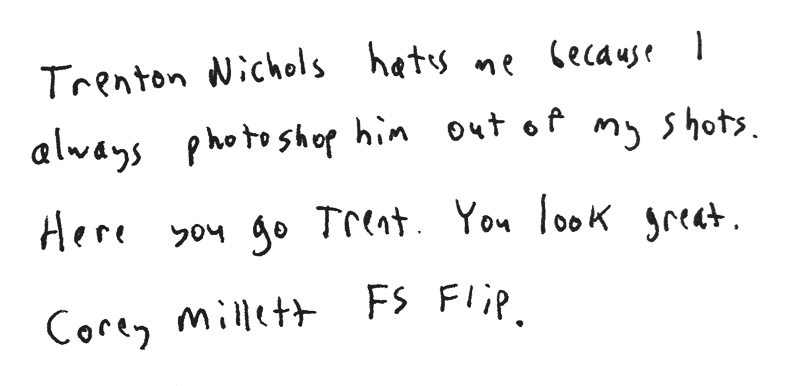 Trenton Nichols hates me because I
always photoshop him out of my shots.
Here you go Trent. You look great.
Corey Millett FS Flip.